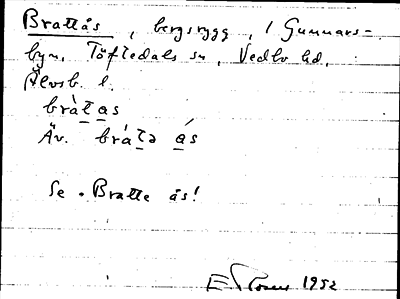 Brattås, bergsrygg, i Gunnars-
byn, Töftedals sn, Vedbo hd,
Älvsb. l.
bràt̲a̲s
Äv. brát̲ə á̲s
Se. Bratte ås!
1952